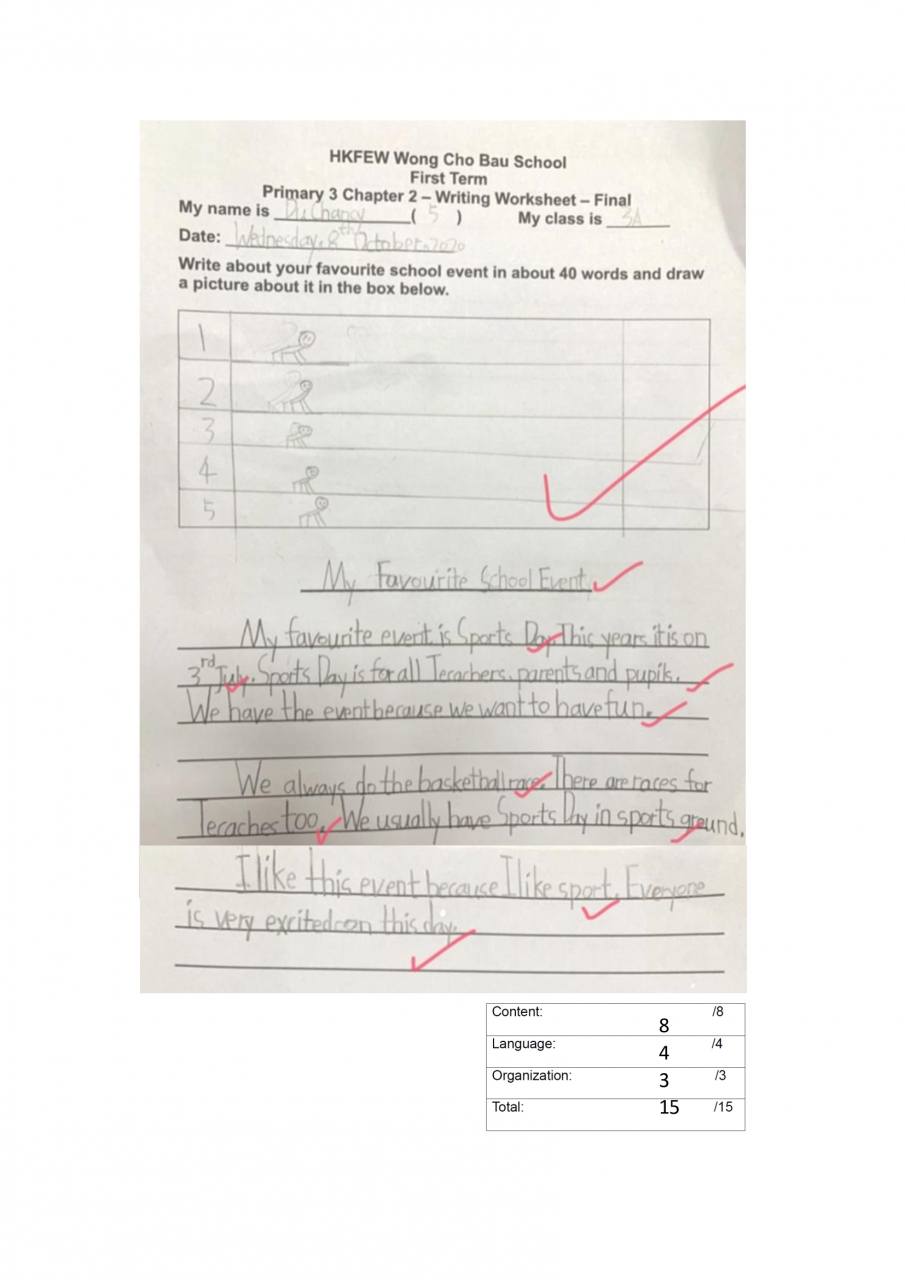 HKFEW Wong Cho Bau School
First Term
Primary 3 Chapter 2 – Writing Worksheet – Final
My name is Du Chancy ( 5 ) My class is 3A
Date: Wednesday, 8th October, 2020
Write about your favourite school event in about 40 words and draw
a picture about it in the box below.
1
2
3
4
5
My Favourite School Event
My favourite event is Sports Day. This years it is on
3rd July. Sports Day is for all Terachers, parents and pupils.
We have the event because we want to have fun.
We always do the basketball race. There are races for
Teraches too. We usually have Sports Day in sports ground.
I like this event because I like sport. Everyone
is very excited on this day.
Content: 8 /8
Language: 4 /4
Organization: 3 /3
Total: 15 /15